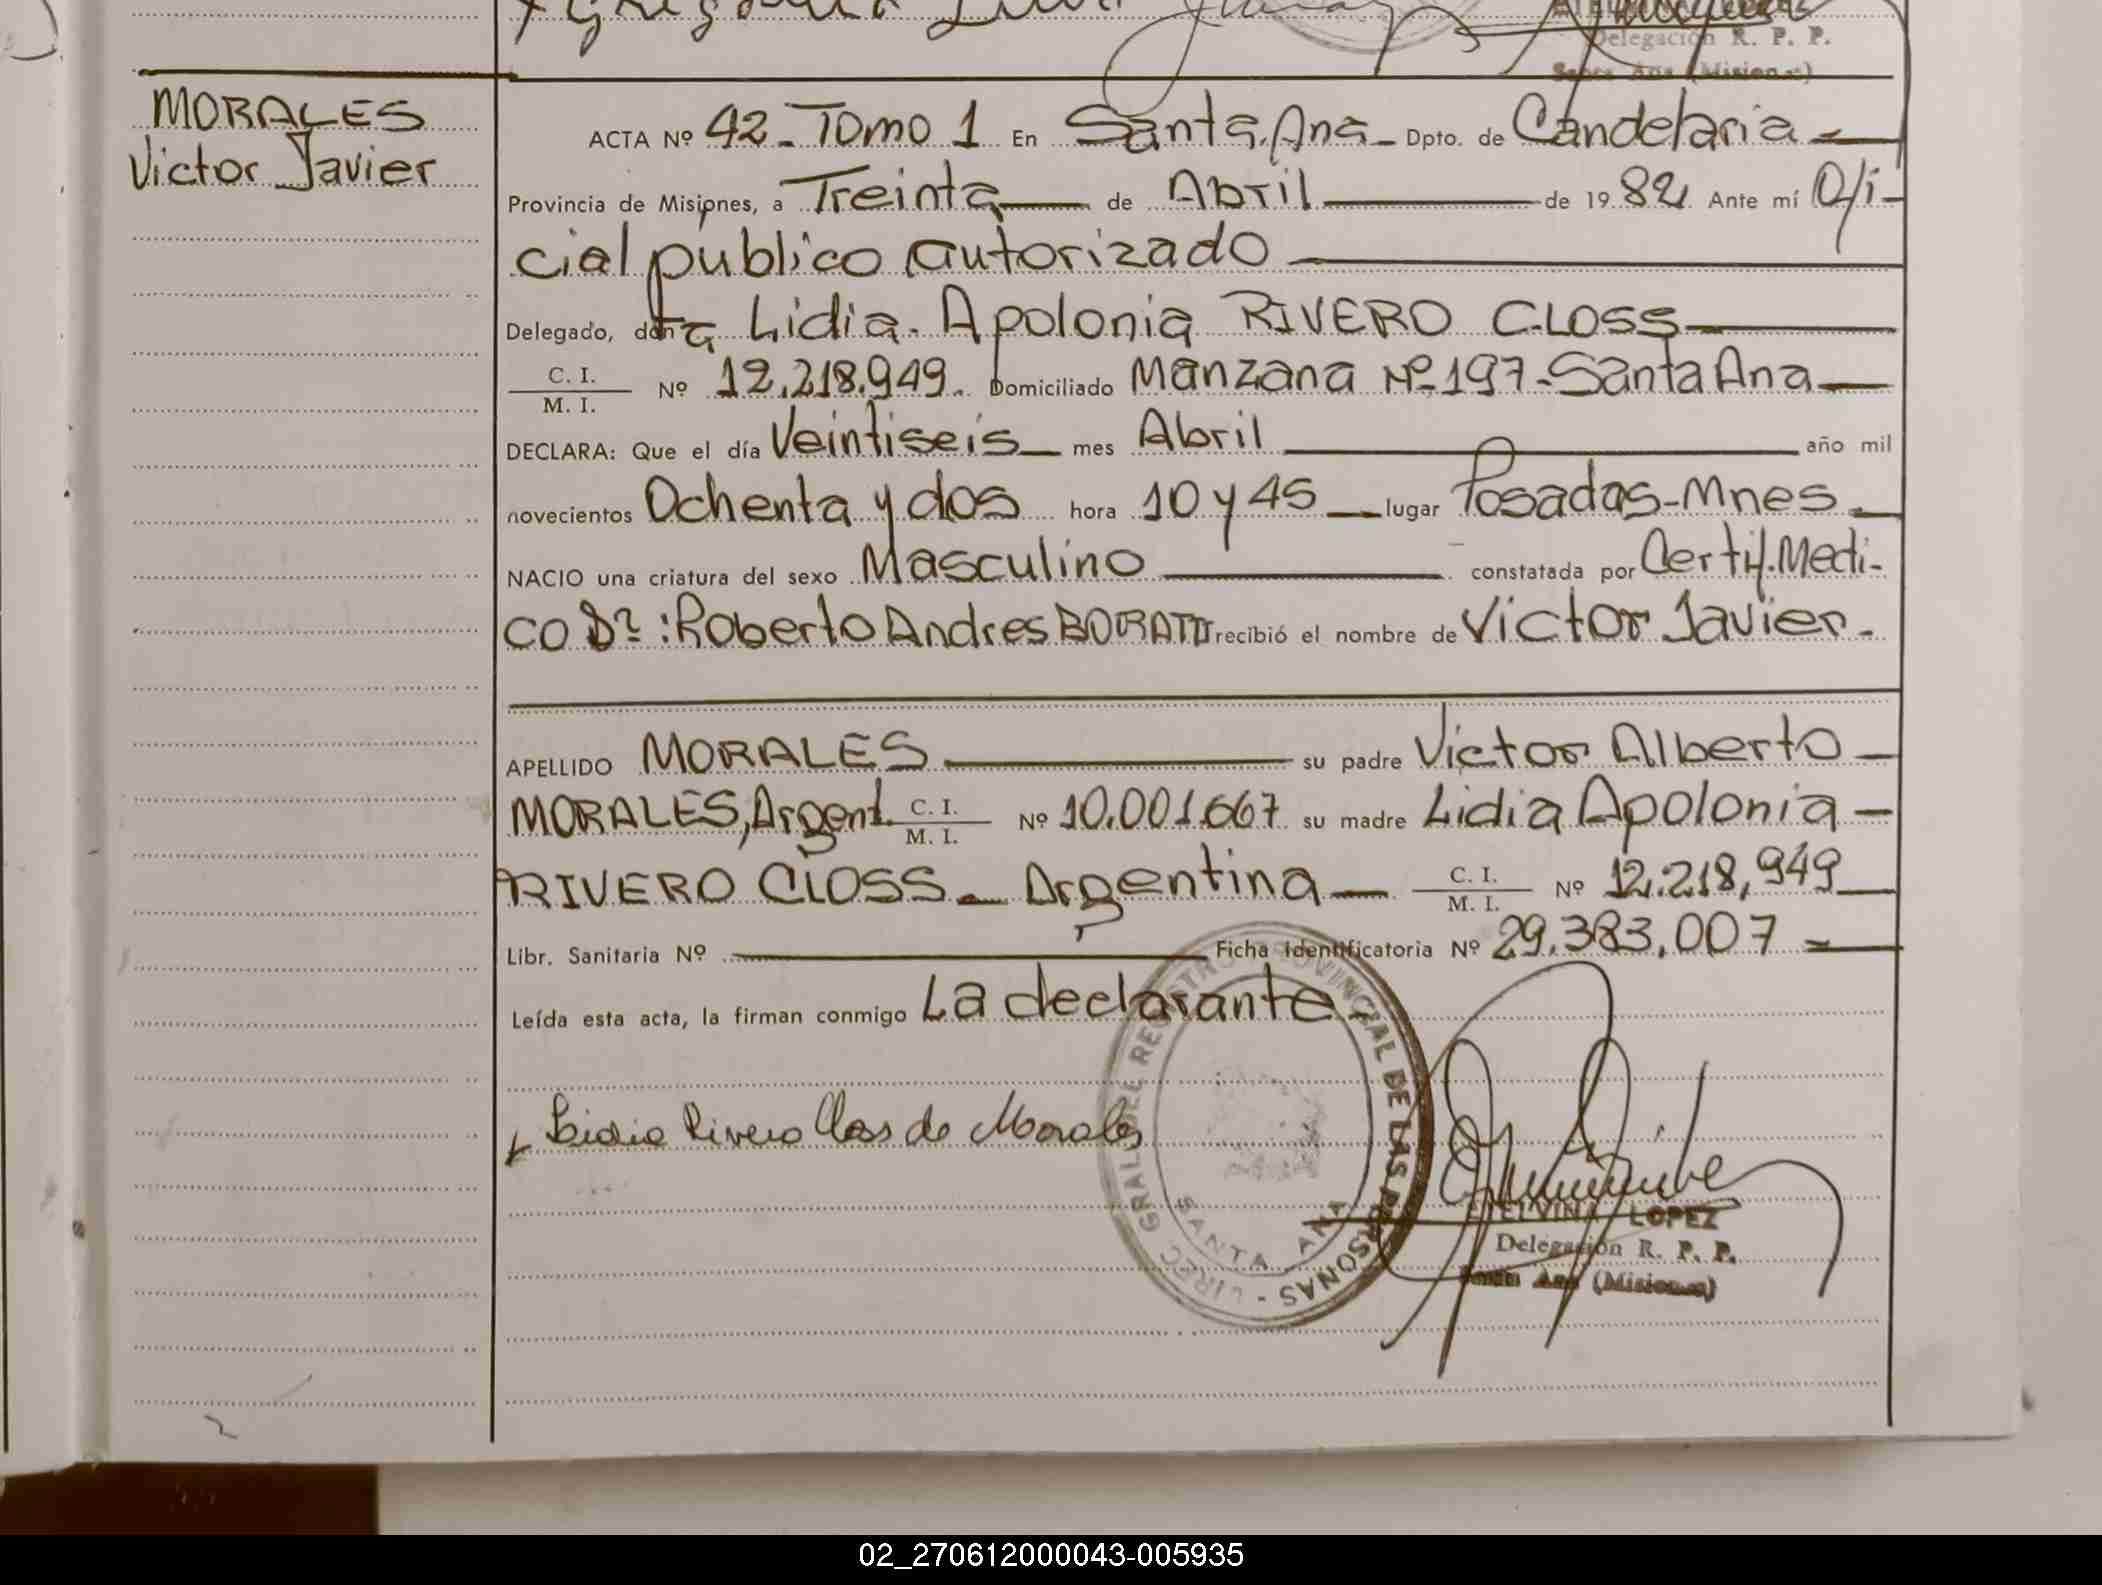 Delegación R. P. P.
Santa Ana (Misiones)
MORALES
Victor Javier
ACTA Nº 42 - Tomo 1 En Santa Ana - Dpto. de Candelaria
Provincia de Misiones, a Treinta de Abril de 19 82 Ante mí Ofi-
cial publico autorizado
Delegado, doña Lidia Apolonia RIVERO CLOSS
C. I.
M. I. Nº 12.218.949. Domiciliado Manzana Nº 197 - Santa Ana
DECLARA: Que el día Veintiseis mes Abril año mil
novecientos Ochenta y dos hora 10 y 45 lugar Posadas - Mnes
NACIO una criatura del sexo Masculino constatada por Certif. Medi-
co Dr: Roberto Andres recibió el nombre de Victor Javier.
APELLIDO MORALES su padre Victor Alberto
MORALES, Argent. C. I. M. I. Nº 10.001.667 su madre Lidia Apolonia
RIVERO CLOSS - Argentina C. I. M. I. Nº 12.218,949
Libr. Sanitaria Nº Ficha Identificatoria Nº 29.383.007
Leída esta acta, la firman conmigo La declarante.
Lidia Rivero Closs de Morales
DIREC GRAL DEL REGISTRO PROVINCIAL DE LAS PERSONAS - SANTA ANA
ETELVINA LOPEZ
Delegación R. P. P.
Santa Ana (Misiones)
02_270612000043-005935